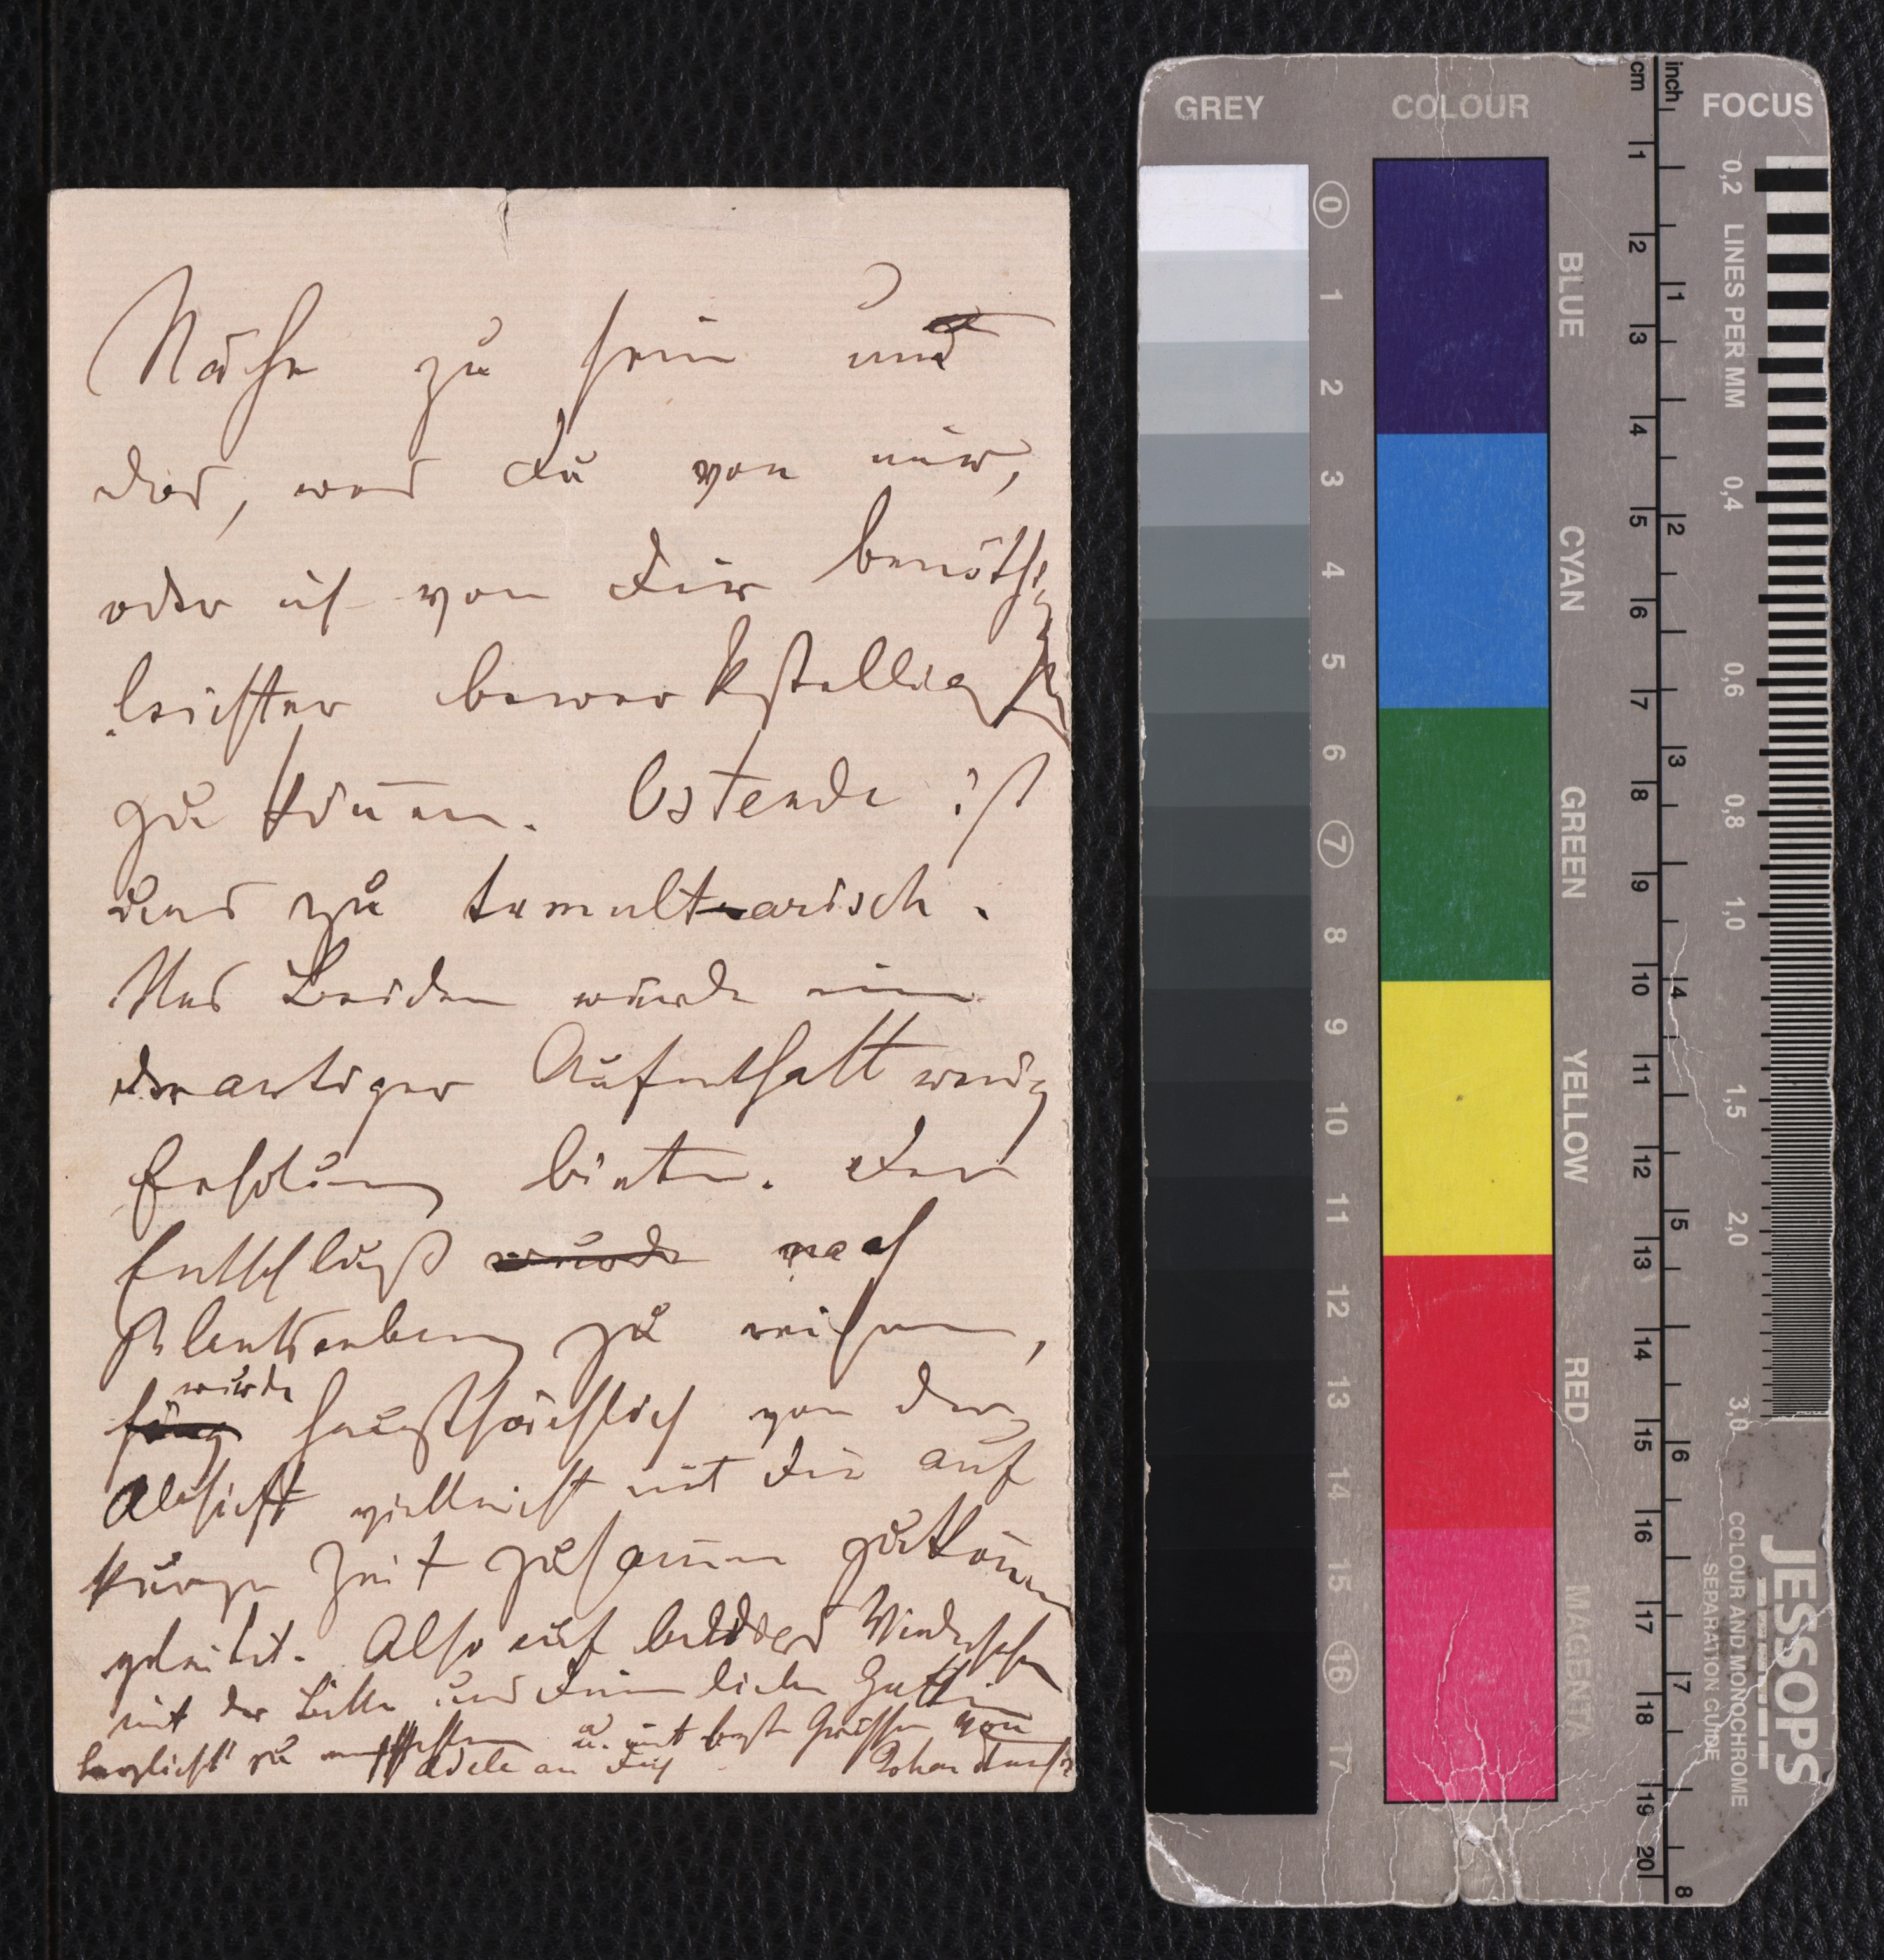 Nähe zu sein und
das, was Du von mir,
oder ich von Dir benöthig
leichter bewerkstelligen
zu können. Ostende ist
uns zu tumultuarisch.
Uns Beiden würde ein
derartiger Aufenthalt wenig
Erholung bieten. Der
Entschluß wurde nach
Blankenberg zu reisen,
wurde
hauptsächlich von der
Absicht vielleicht mit Dir auf
kurze Zeit zusammen zu kommen
geleitet. Also auf baldiges Wiedersehen
mit der Bitte uns Deiner lieben Gattin
herzlichst zu empfehlen u. mit besten Grüßen von
Adele an Dich
Johann Strauss
GREY COLOUR FOCUS
cm inch
0 1 2 3 4 5 6 7 8 9 10 11 12 13 14 15 16 17
BLUE
CYAN
GREEN
YELLOW
RED
MAGENTA
1 2 3 4 5 6 7 8 9 10 11 12 13 14 15 16 17 18 19 20
1 2 3 4 5 6 7 8
0,2 LINES PER MM 0,4 0,6 0,8 1,0 1,5 2,0 3,0
JESSOPS
COLOUR AND MONOCHROME
SEPARATION GUIDE